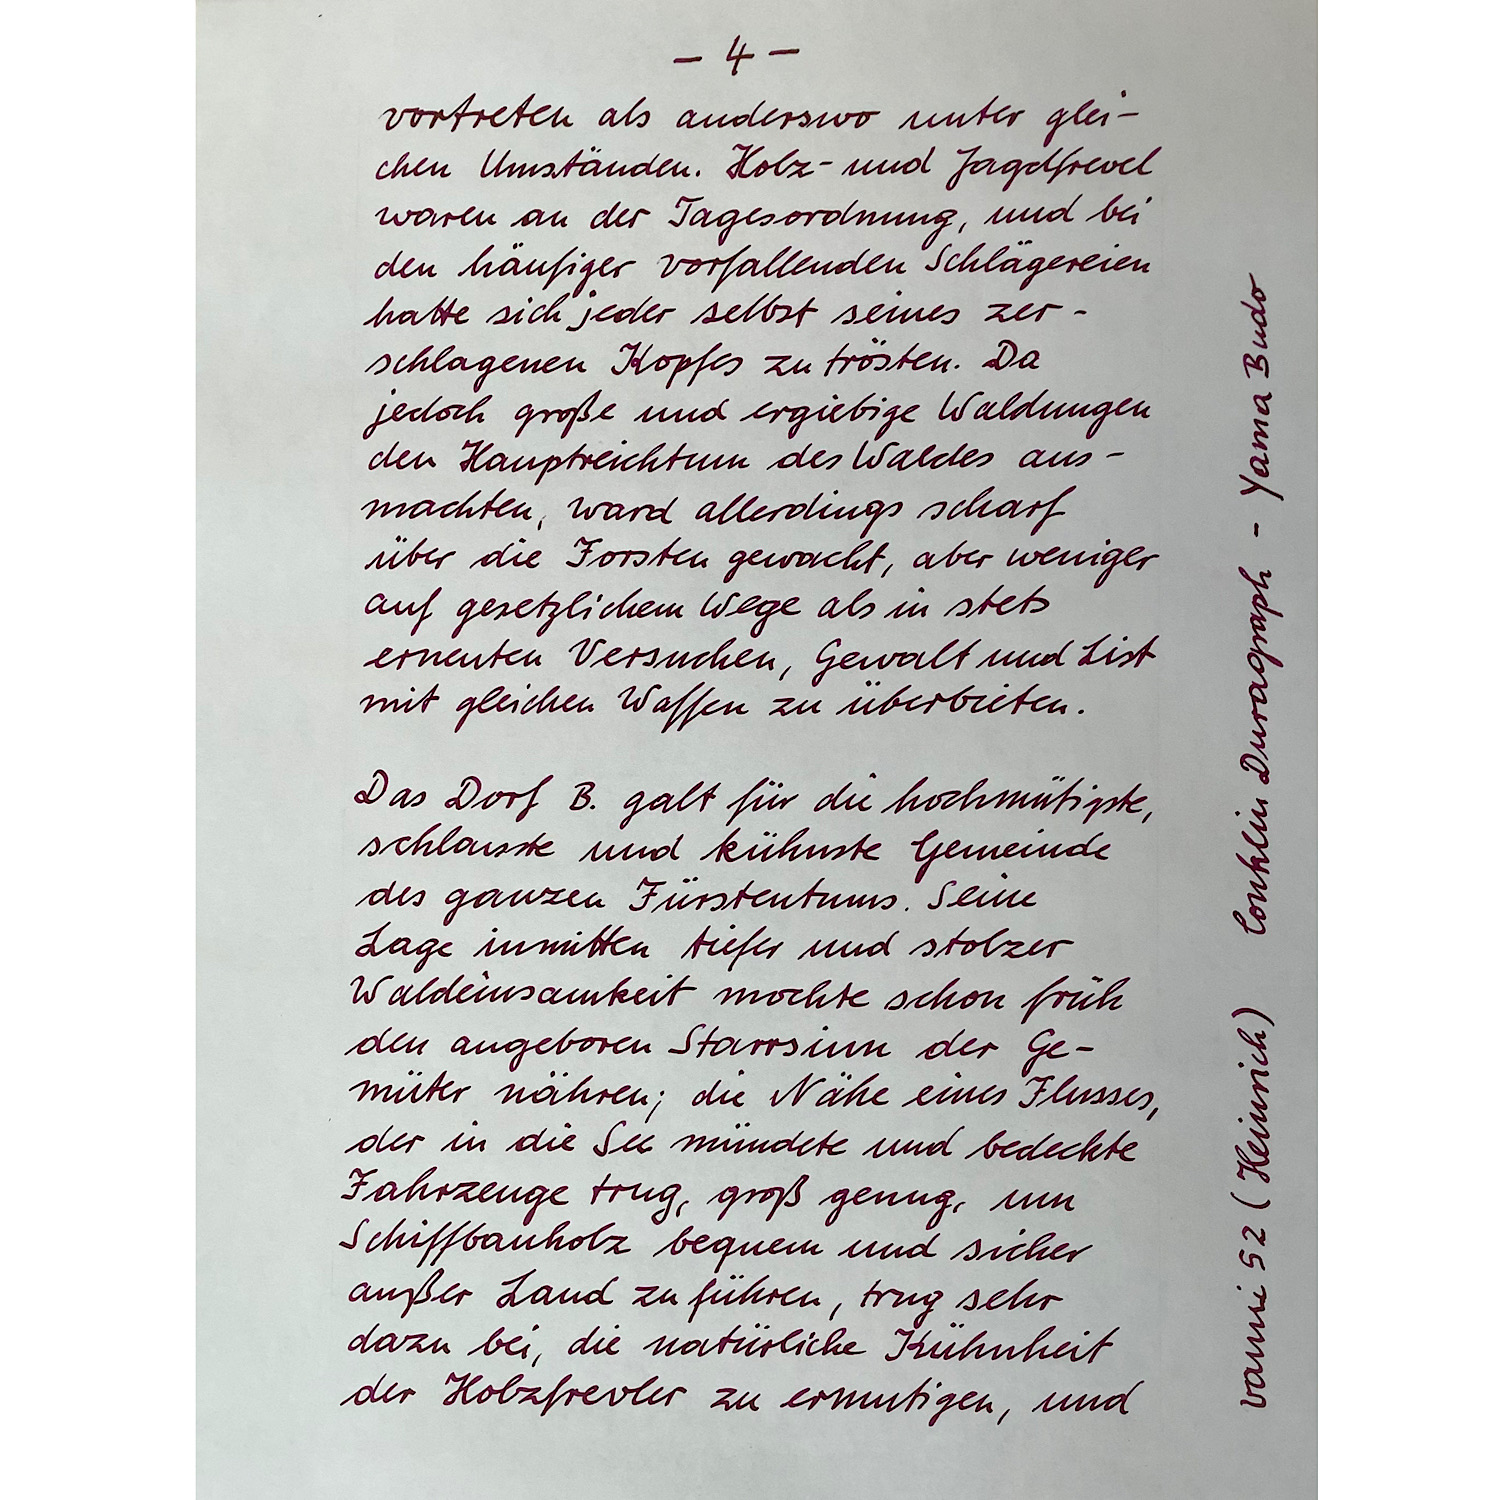 – 4 –
vortreten als anderswo unter glei-
chen Umständen. Holz- und Jagdfrevel
waren an der Tagesordnung, und bei
den häufiger vorfallenden Schlägereien
hatte sich jeder selbst seines zer-
schlagenen Kopfes zu trösten. Da
jedoch große und ergiebige Waldungen
den Hauptreichtum des Waldes aus-
machten, ward allerdings scharf
über die Forsten gewacht, aber weniger
auf gesetzlichem Wege als in stets
erneuten Versuchen, Gewalt und List
mit gleichen Waffen zu überbieten.
Das Dorf B. galt für die hochmütigste,
schlauste und kühnste Gemeinde
des ganzen Fürstentums. Seine
Lage inmitten tiefer und stolzer
Waldeinsamkeit mochte schon früh
den angeboren Starrsinn der Ge-
müter nähren; die Nähe eines Flusses,
der in die See mündete und bedeckte
Fahrzeuge trug, groß genug, um
Schiffbauholz bequem und sicher
außer Land zu führen, trug sehr
dazu bei, die natürliche Kühnheit
der Holzfrevler zu ermutigen, und
vanni 52 (Heinrich) Conklin Duragraph - Yama Budo